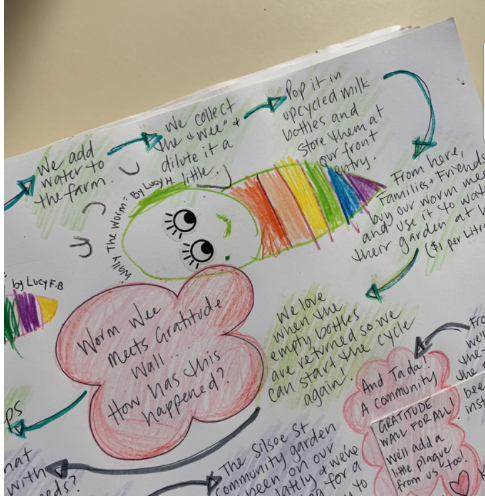 We add
water to
the farm.
We collect
the "wee" &
dilute it a
little.
Pop it in
upcycled milk
bottles and
store them at
our front
entry.
From here,
Families & Friends
buy our worm wee
and use it to
their garden at
($1 per Litre
We love
when the
empty bottles
are returned so we
can start the cycle
again!
"Wally The Worm" By Lucy H.
by Lucy F.B
Worm Wee
Meets Gratitude
Wall...
How has this
happened?
And Tada!
A community
GRATITUDE
WALL FOR ALL!
We'll add a
little plaque
from us too!
The Silsoe St
community garden
been on our
lately & we've
for a
to
with